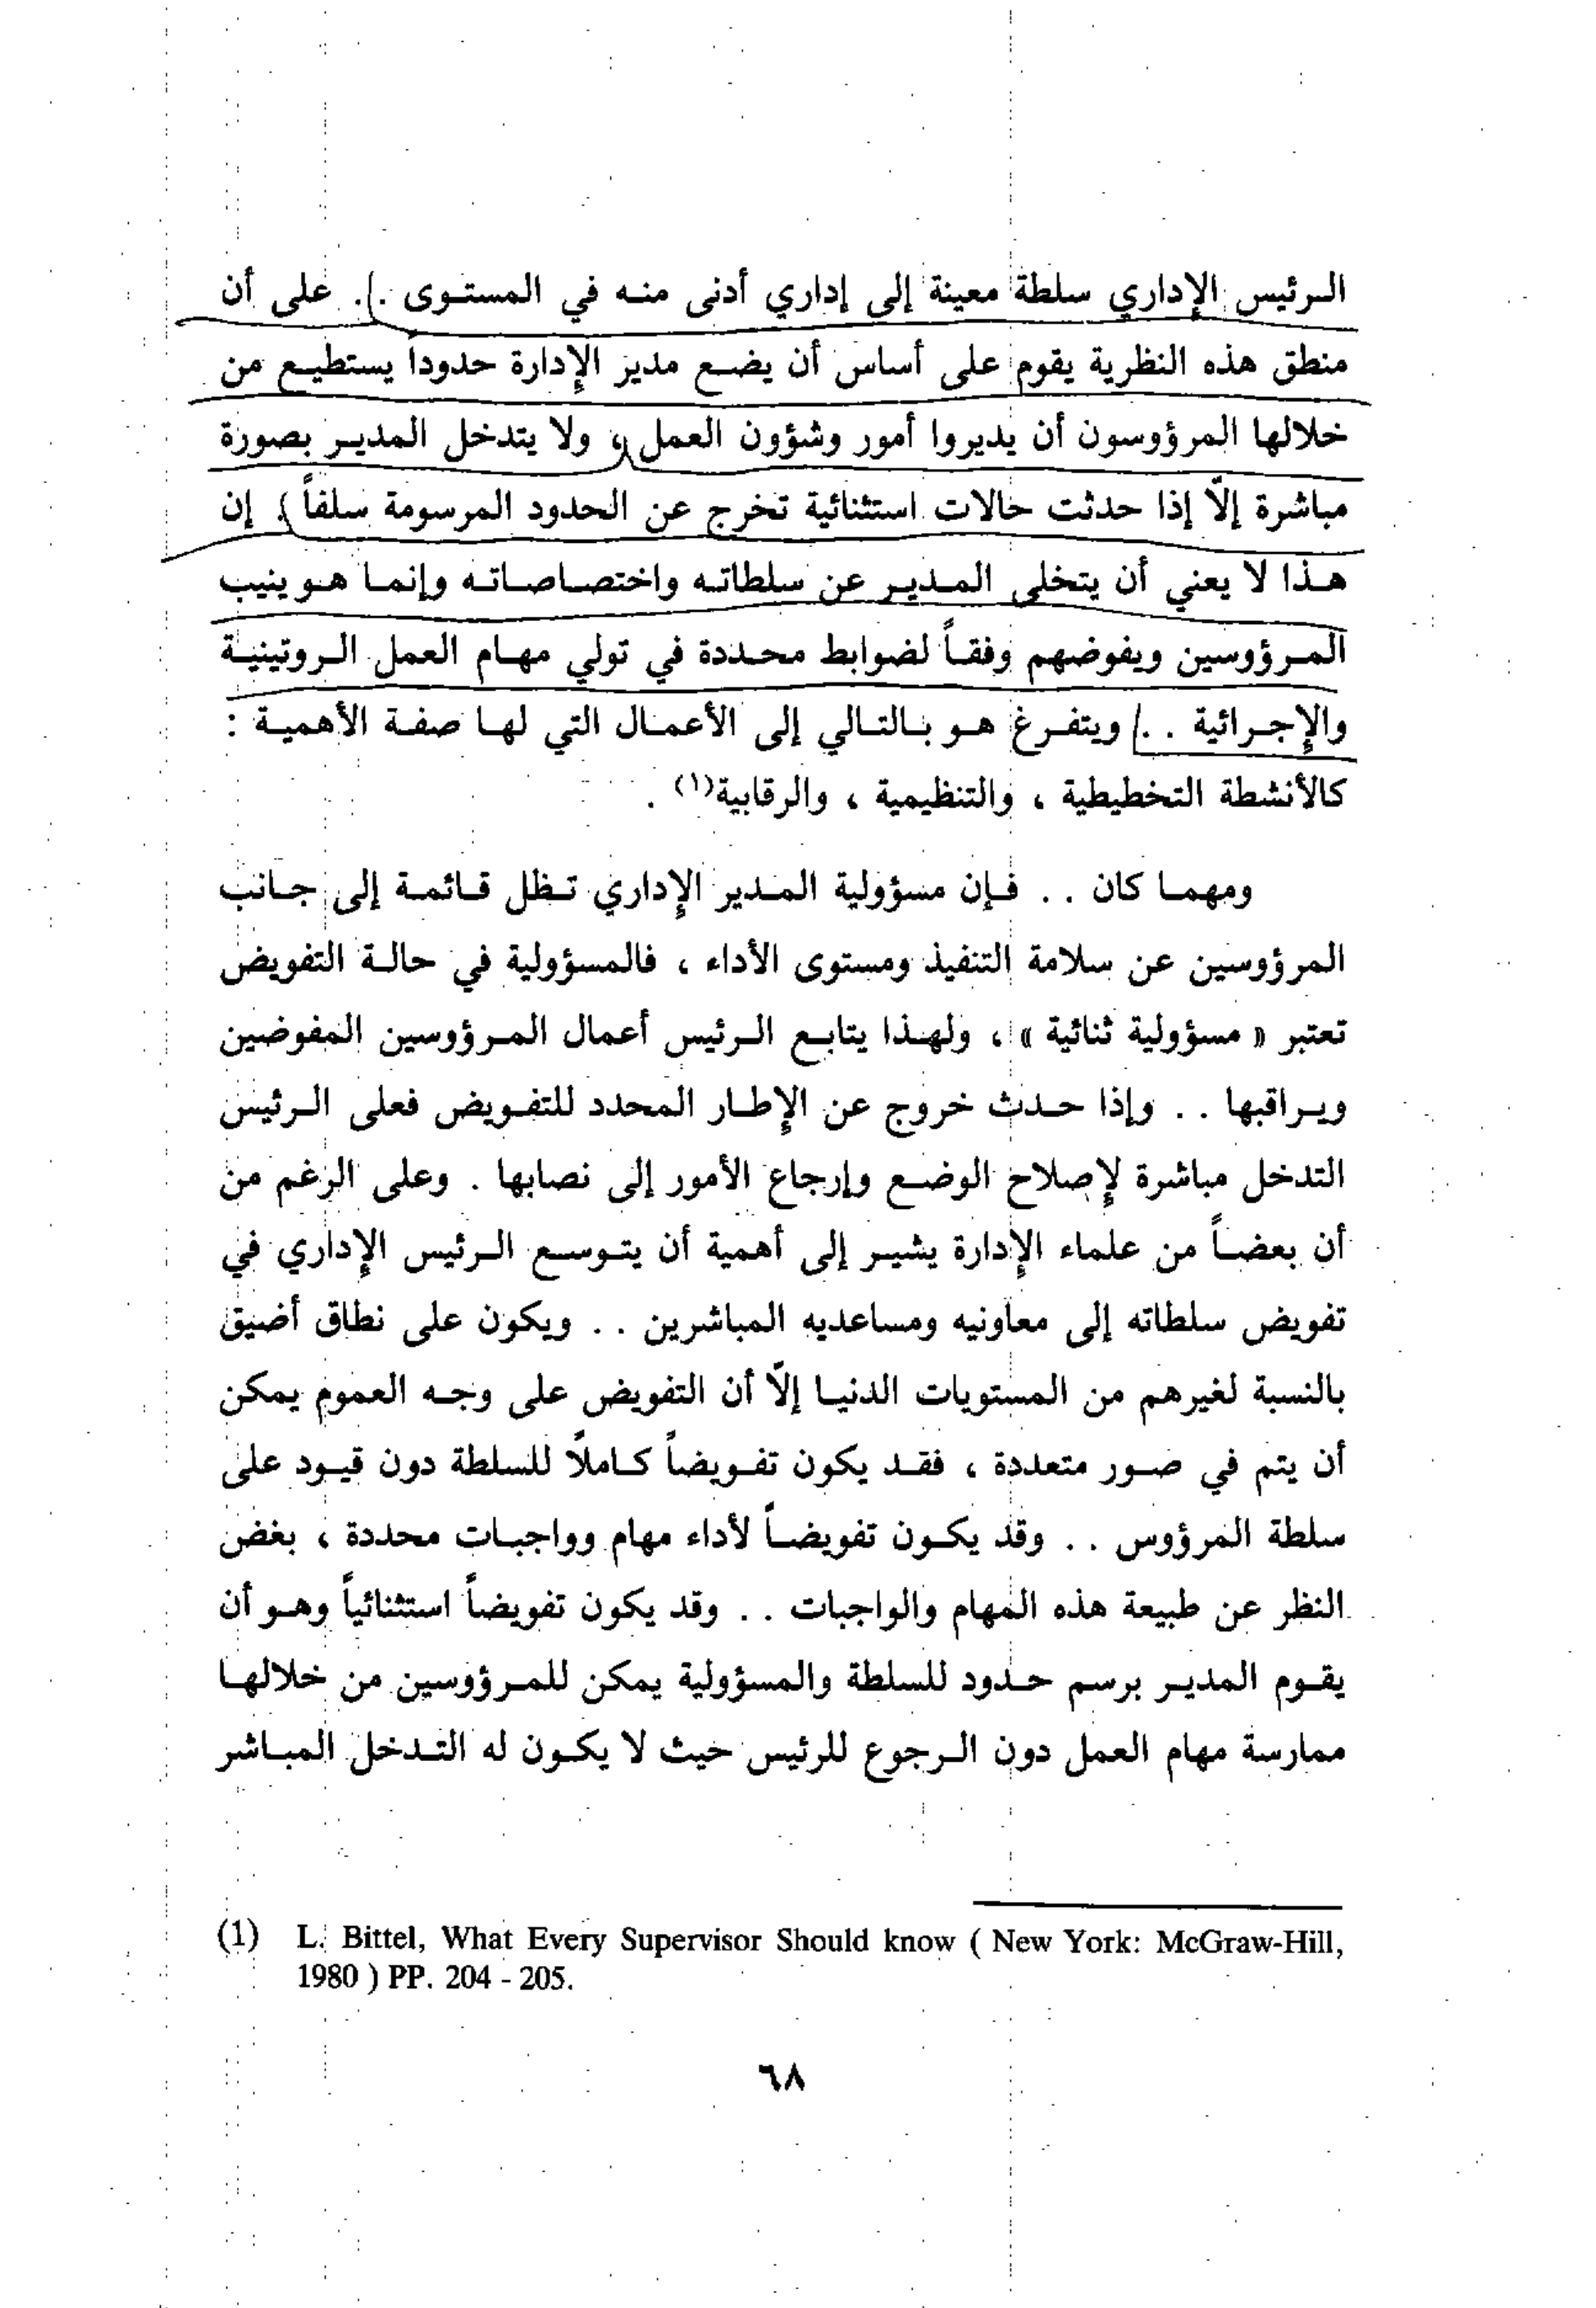 الرئيس الإداري سلطة معينة إلى إداري أدنى منه في المستوى . . على أن
منطق هذه النظرية يقوم على أساس أن يضع مدير الإدارة حدوداً يستطيع من
خلالها المرؤوسون أن يديروا أمور وشؤون العمل ، ولا يتدخل المدير بصورة
مباشرة إلّا إذا حدثت حالات استثنائية تخرج عن الحدود المرسومة سلفاً . إن
هذا لا يعني أن يتخلى المدير عن سلطاته واختصاصاته وإنما هو ينيب
المرؤوسين ويفوضهم وفقاً لضوابط محددة في تولي مهام العمل الروتينية
والإجرائية . . ويتفرغ هو بالتالي إلى الأعمال التي لها صفة الأهمية :
كالأنشطة التخطيطية ، والتنظيمية ، والرقابية(١) .
ومهما كان . . فإن مسؤولية المدير الإداري تظل قائمة إلى جانب
المرؤوسين عن سلامة التنفيذ ومستوى الأداء ، فالمسؤولية في حالة التفويض
تعتبر « مسؤولية ثنائية » ، ولهذا يتابع الرئيس أعمال المرؤوسين المفوضين
ويراقبها . . وإذا حدث خروج عن الإطار المحدد للتفويض فعلى الرئيس
التدخل مباشرة لإصلاح الوضع وإرجاع الأمور إلى نصابها . وعلى الرغم من
أن بعضاً من علماء الإدارة يشير إلى أهمية أن يتوسع الرئيس الإداري في
تفويض سلطاته إلى معاونيه ومساعديه المباشرين . . ويكون على نطاق أضيق
بالنسبة لغيرهم من المستويات الدنيا إلّا أن التفويض على وجه العموم يمكن
أن يتم في صور متعددة ، فقد يكون تفويضاً كاملاً للسلطة دون قيود على
سلطة المرؤوس . . وقد يكون تفويضاً لأداء مهام وواجبات محددة ، بغض
النظر عن طبيعة هذه المهام والواجبات . . وقد يكون تفويضاً استثنائياً وهو أن
يقوم المدير برسم حدود للسلطة والمسؤولية يمكن للمرؤوسين من خلالها
ممارسة مهام العمل دون الرجوع للرئيس حيث لا يكون له التدخل المباشر
(1) L. Bittel, What Every Supervisor Should know ( New York: McGraw-Hill,
1980 ) PP. 204 - 205.
٦٨